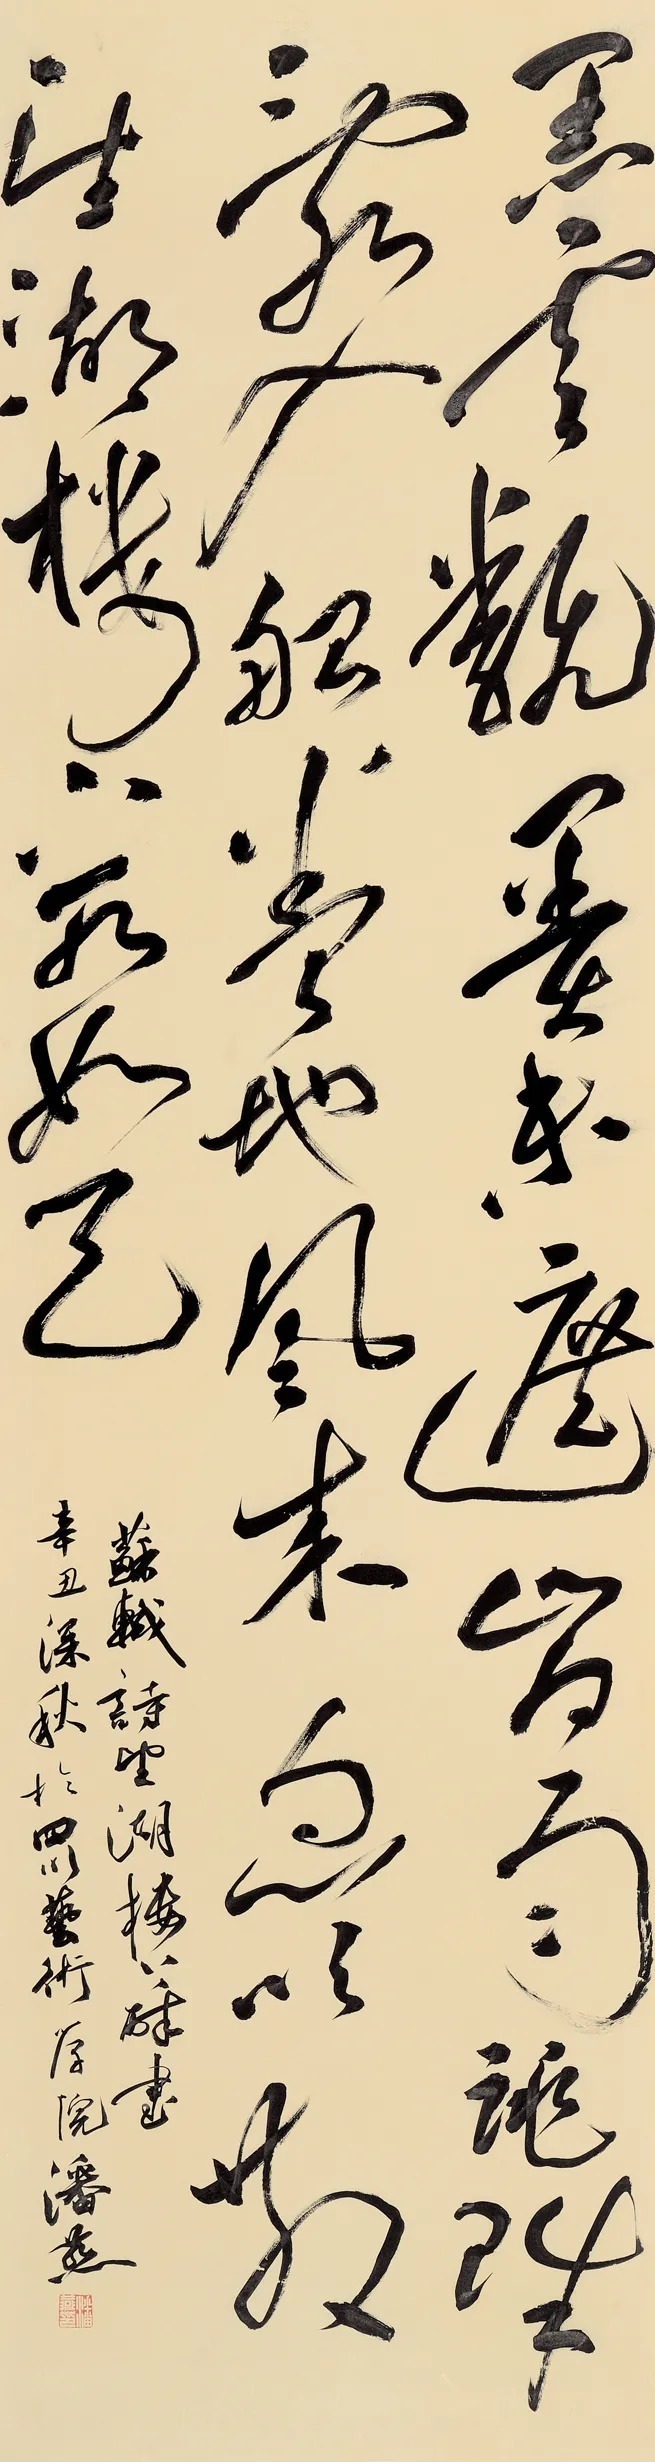 黑雲翻墨未遮山白雨跳珠
亂入船卷地風來忽吹散
望湖樓下水如天
蘇軾詩望湖樓下醉書
辛丑深秋於四川藝術学院潘燕